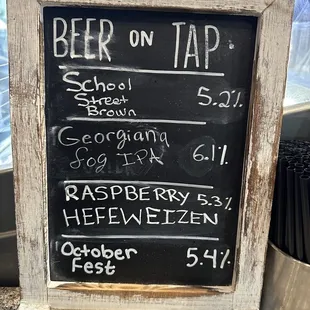 BEER ON TAP
School
Street 5.2%
Brown
Georgiana
fog IPA 6.1%
RASPBERRY 5.3%
HEFEWEIZEN
October
Fest 5.4%